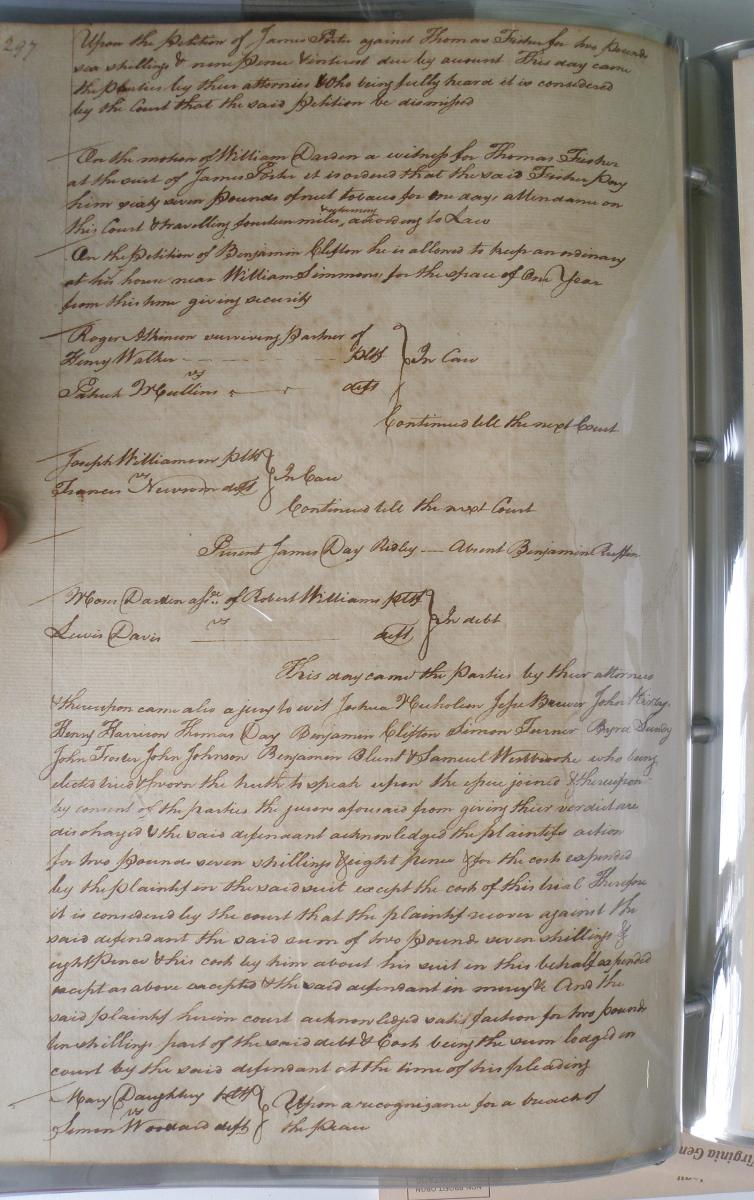 297
Upon the Petition of James Foster against Thomas Fisher for two pounds
six shillings & nine pence & interest due by account This day came
the parties by their attornies & who being fully heard it is considered
by the Court that the said Petition be dismissed
On the motion of William Darden a witness for Thomas Fisher
at the suit of James Foster it is ordered that the said Fisher pay
him sixty seven pounds of nett tobacco for one days attendance on
this Court & travelling fourteen miles, & returning according to Law
On the Petition of Benjamin Clifton he is allowed to keep an ordinary
at his house near William Simmons, for the space of One Year
from this time giving security
Roger Atkinson surviving Partner of
Henry Walker plts In Case
vs
Patrick McCullins deft
Continued till the next Court
Joseph Williamson plt
vs In Case
Francis Newsom deft
Continued till the next Court
Present James Day Ridley — Absent Benjamin Ruffin
Moses Darden asse. of Robert Williams plt
vs In debt
Lewis Davis deft
This day came the parties by their attornies
& thereupon came also a jury to wit Joshua Nicholson Jesse Brewer John Kirby,
Henry Harrison Thomas Day Benjamin Clifton Simon Turner Byrd
John Foster John Johnson Benjamin Blunt & Samuel Westbrooke who being
elected tried & sworn the truth to speak upon the issue joined & thereupon
by consent of the parties the jurors aforesaid from giving their verdict are
discharged & the said defendant acknowledged the plaintifs action
for two pounds seven shillings & eight pence & for the costs expended
by the plaintif in the said suit except the costs of this trial Therefore
it is considered by the court that the plaintif recover against the
said defendant the said sum of two pounds seven shillings &
eight pence & his costs by him about his suit in this behalf expended
except as above excepted & the said defendant in mercy &c And the
said plaintif herein court acknowledged satisfaction for two pounds
ten shillings part of the said debt & Costs being the sum lodged in
court by the said defendant at the time of his pleading
Mary Daughtry plt
vs Upon a recognizance for a breach of
Simon Woodard deft the peace
Virginia Gen